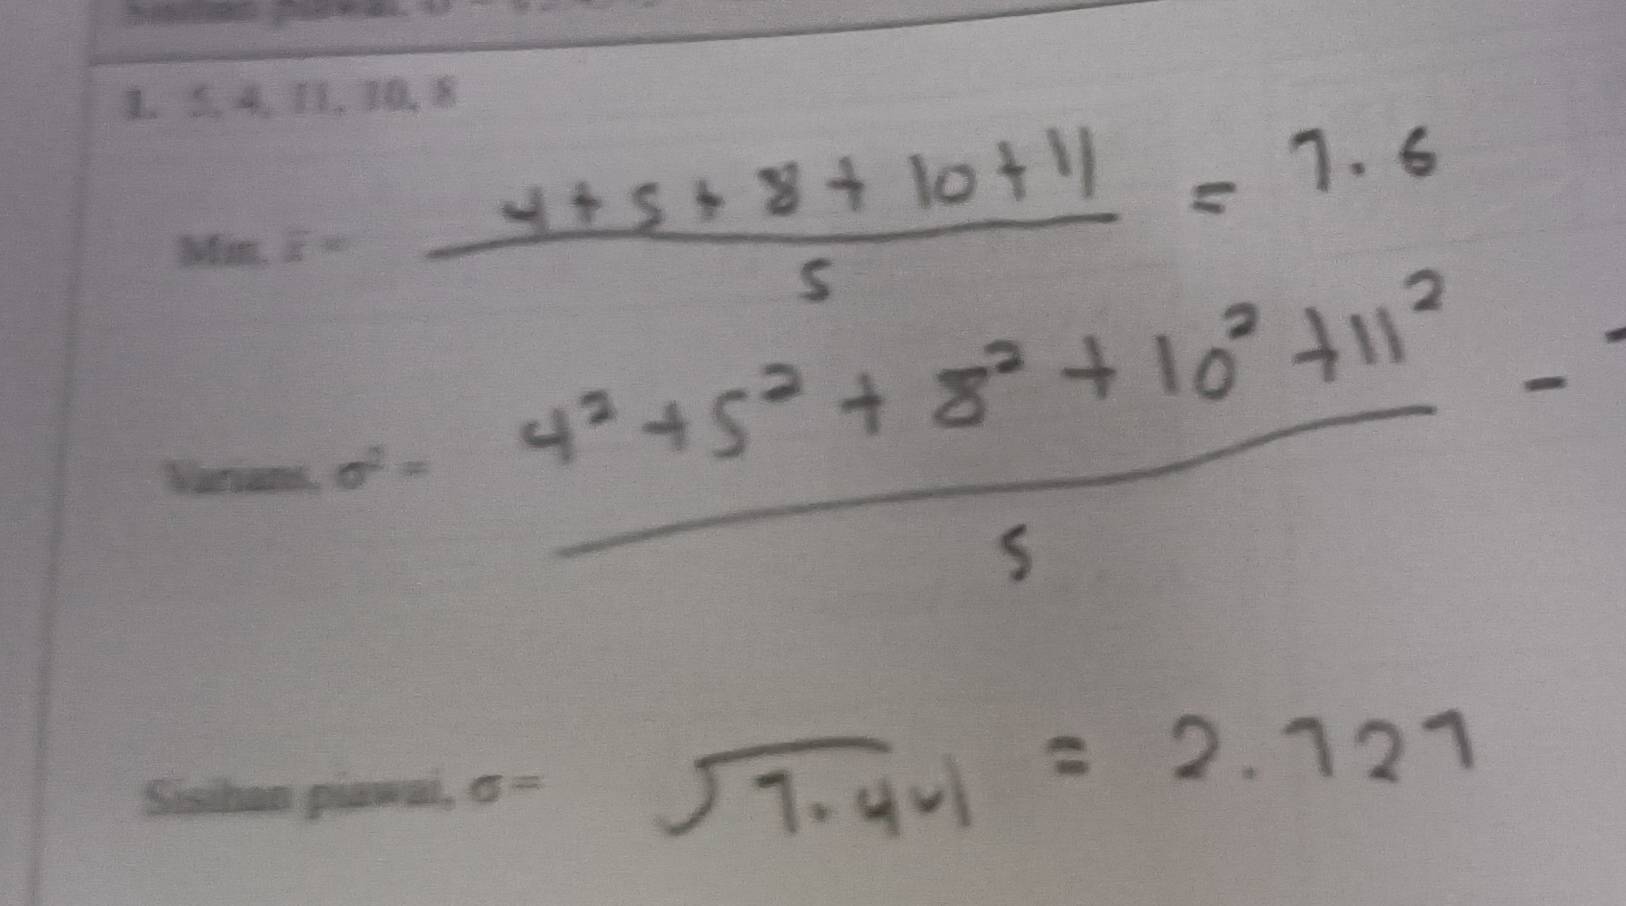 1. 5, 4, 11, 10, 8
Min, x̄ = (4 + 5 + 8 + 10 + 11) / 5 = 7.6
Varians, σ² = (4² + 5² + 8² + 10² + 11²) / 5 -
Sisihan piawai, σ = √7.441 = 2.727